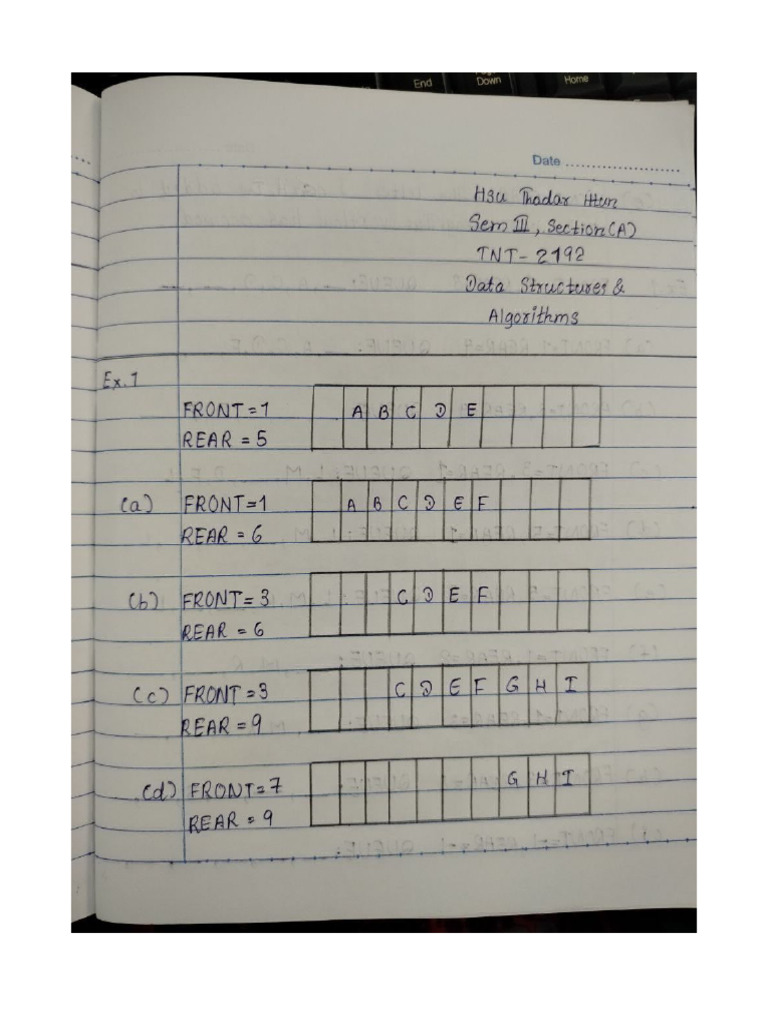 End
Down
Home
Date
Hsu Thadar Htun
Sem III, Section(A)
TNT-2192
Data Structures &
Algorithms
Ex.1
FRONT=1 A B C D E
REAR = 5
(a) FRONT=1 A B C D E F
REAR = 6
(b) FRONT=3 C D E F
REAR = 6
(c) FRONT=3 C D E F G H I
REAR = 9
(d) FRONT=7 G H I
REAR = 9